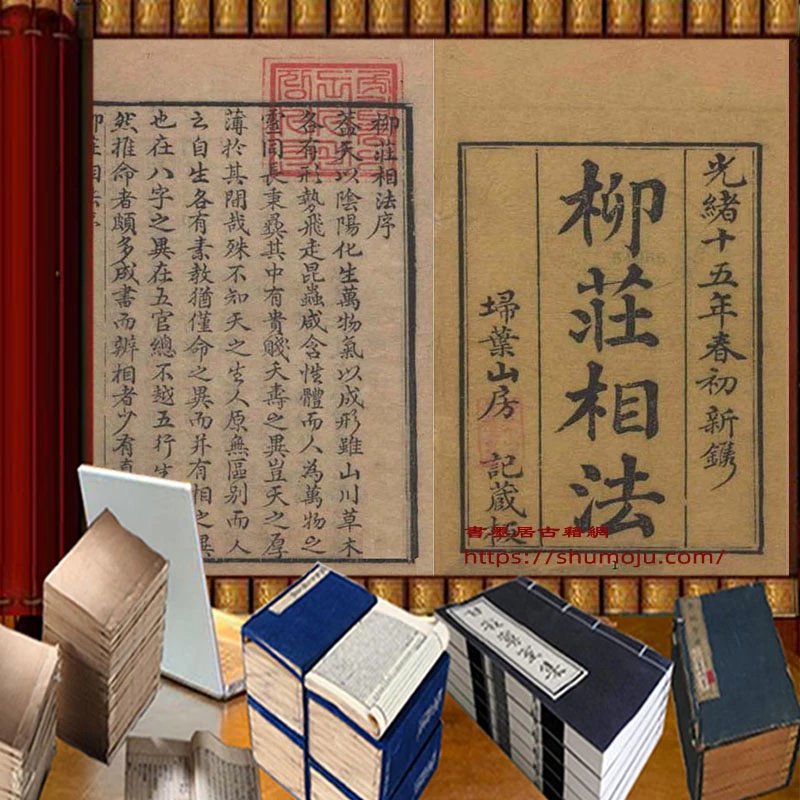 光緒十五年春初新鐫
柳莊相法
埽葉山房 記藏板
柳莊相法序
蓋天以陰陽化生萬物氣以成形雖山川草木
各有形勢飛走昆蟲咸含性體而人為萬物之
靈同長秉彝其中有貴賤夭壽之異豈天之厚
薄於其間哉殊不知天之生人原無區別而人
云自生各有素教猶僅命之異而并有相之異
也在八字之異在五官總不越五行生
然推命者頗多成書而辨相者少有真
書墨居古籍網
https://shumoju.com/